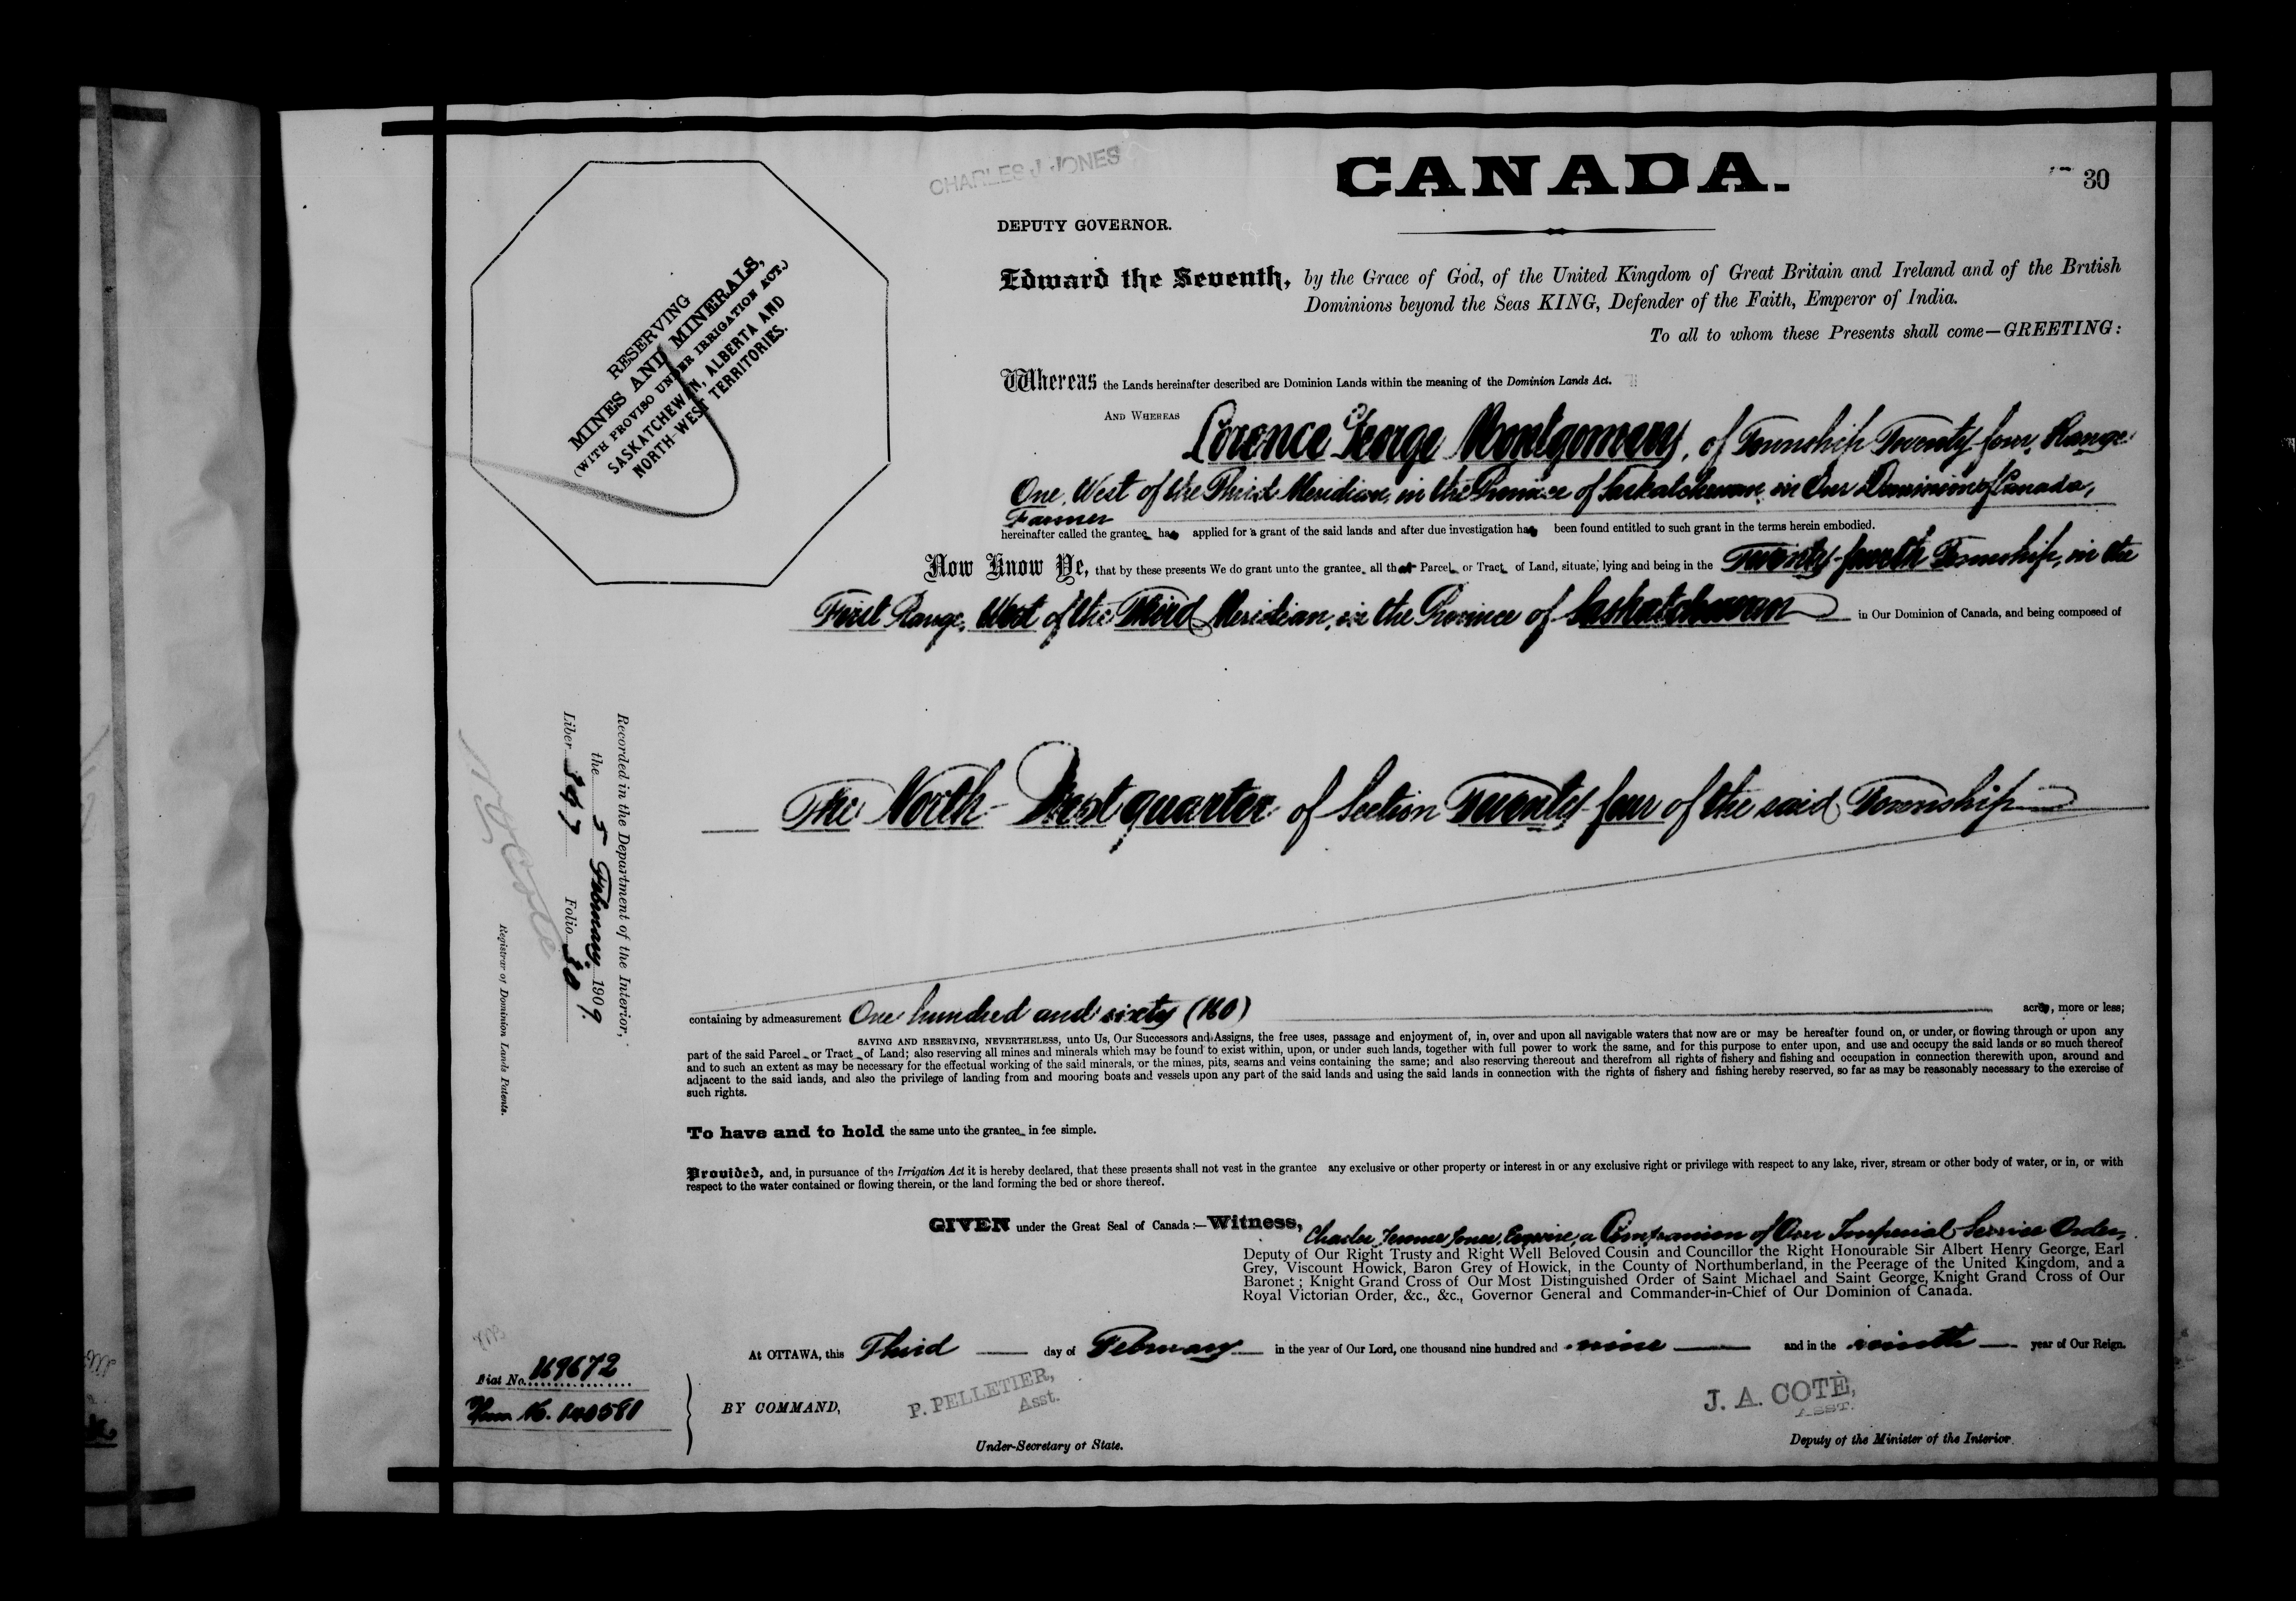 CHARLES J. JONES
CANADA.
30
DEPUTY GOVERNOR.
Edward the Seventh, by the Grace of God, of the United Kingdom of Great Britain and Ireland and of the British
Dominions beyond the Seas KING, Defender of the Faith, Emperor of India.
To all to whom these Presents shall come—GREETING:
RESERVING
MINES AND MINERALS,
(WITH PROVISO UNDER IRRIGATION ACT.)
SASKATCHEWAN, ALBERTA AND
NORTH-WEST TERRITORIES.
Whereas the Lands hereinafter described are Dominion Lands within the meaning of the Dominion Lands Act.
AND WHEREAS Lorence George Montgomery, of Township Twenty four, Range
One, West of the Third Meridian, in the Province of Saskatchewan in Our Dominion of Canada,
Farmer
hereinafter called the grantee has applied for a grant of the said lands and after due investigation has been found entitled to such grant in the terms herein embodied.
Now Know Ye, that by these presents We do grant unto the grantee all that Parcel or Tract of Land, situate, lying and being in the Twenty-fourth Township, in the
First Range, West of the Third Meridian, in the Province of Saskatchewan in Our Dominion of Canada, and being composed of
The North-West quarter of Section Twenty four of the said Township
containing by admeasurement One hundred and sixty (160) acres, more or less;
SAVING AND RESERVING, NEVERTHELESS, unto Us, Our Successors and Assigns, the free uses, passage and enjoyment of, in, over and upon all navigable waters that now are or may be hereafter found on, or under, or flowing through or upon any
part of the said Parcel or Tract of Land; also reserving all mines and minerals which may be found to exist within, upon, or under such lands, together with full power to work the same, and for this purpose to enter upon, and use and occupy the said lands or so much thereof
and to such an extent as may be necessary for the effectual working of the said minerals, or the mines, pits, seams and veins containing the same; and also reserving thereout and therefrom all rights of fishery and fishing and occupation in connection therewith upon, around and
adjacent to the said lands, and also the privilege of landing from and mooring boats and vessels upon any part of the said lands and using the said lands in connection with the rights of fishery and fishing hereby reserved, so far as may be reasonably necessary to the exercise of
such rights.
To have and to hold the same unto the grantee in fee simple.
Provided, and, in pursuance of the Irrigation Act it is hereby declared, that these presents shall not vest in the grantee any exclusive or other property or interest in or any exclusive right or privilege with respect to any lake, river, stream or other body of water, or in, or with
respect to the water contained or flowing therein, or the land forming the bed or shore thereof.
GIVEN under the Great Seal of Canada:—Witness, Charles Jones, Esquire, a Companion of Our Imperial Service Order,
Deputy of Our Right Trusty and Right Well Beloved Cousin and Councillor the Right Honourable Sir Albert Henry George, Earl
Grey, Viscount Howick, Baron Grey of Howick, in the County of Northumberland, in the Peerage of the United Kingdom, and a
Baronet; Knight Grand Cross of Our Most Distinguished Order of Saint Michael and Saint George, Knight Grand Cross of Our
Royal Victorian Order, &c., &c., Governor General and Commander-in-Chief of Our Dominion of Canada.
At OTTAWA, this Third day of February in the year of Our Lord, one thousand nine hundred and nine and in the ninth year of Our Reign.
BY COMMAND,
P. PELLETIER,
Asst.
Under-Secretary of State.
J. A. COTÈ,
ASST.
Deputy of the Minister of the Interior.
Fiat No. 169672
Hom. 140581
Recorded in the Department of the Interior,
the 5 February 1909.
Liber 397 Folio 30
N O Coté
Registrar of Dominion Lands Patents.